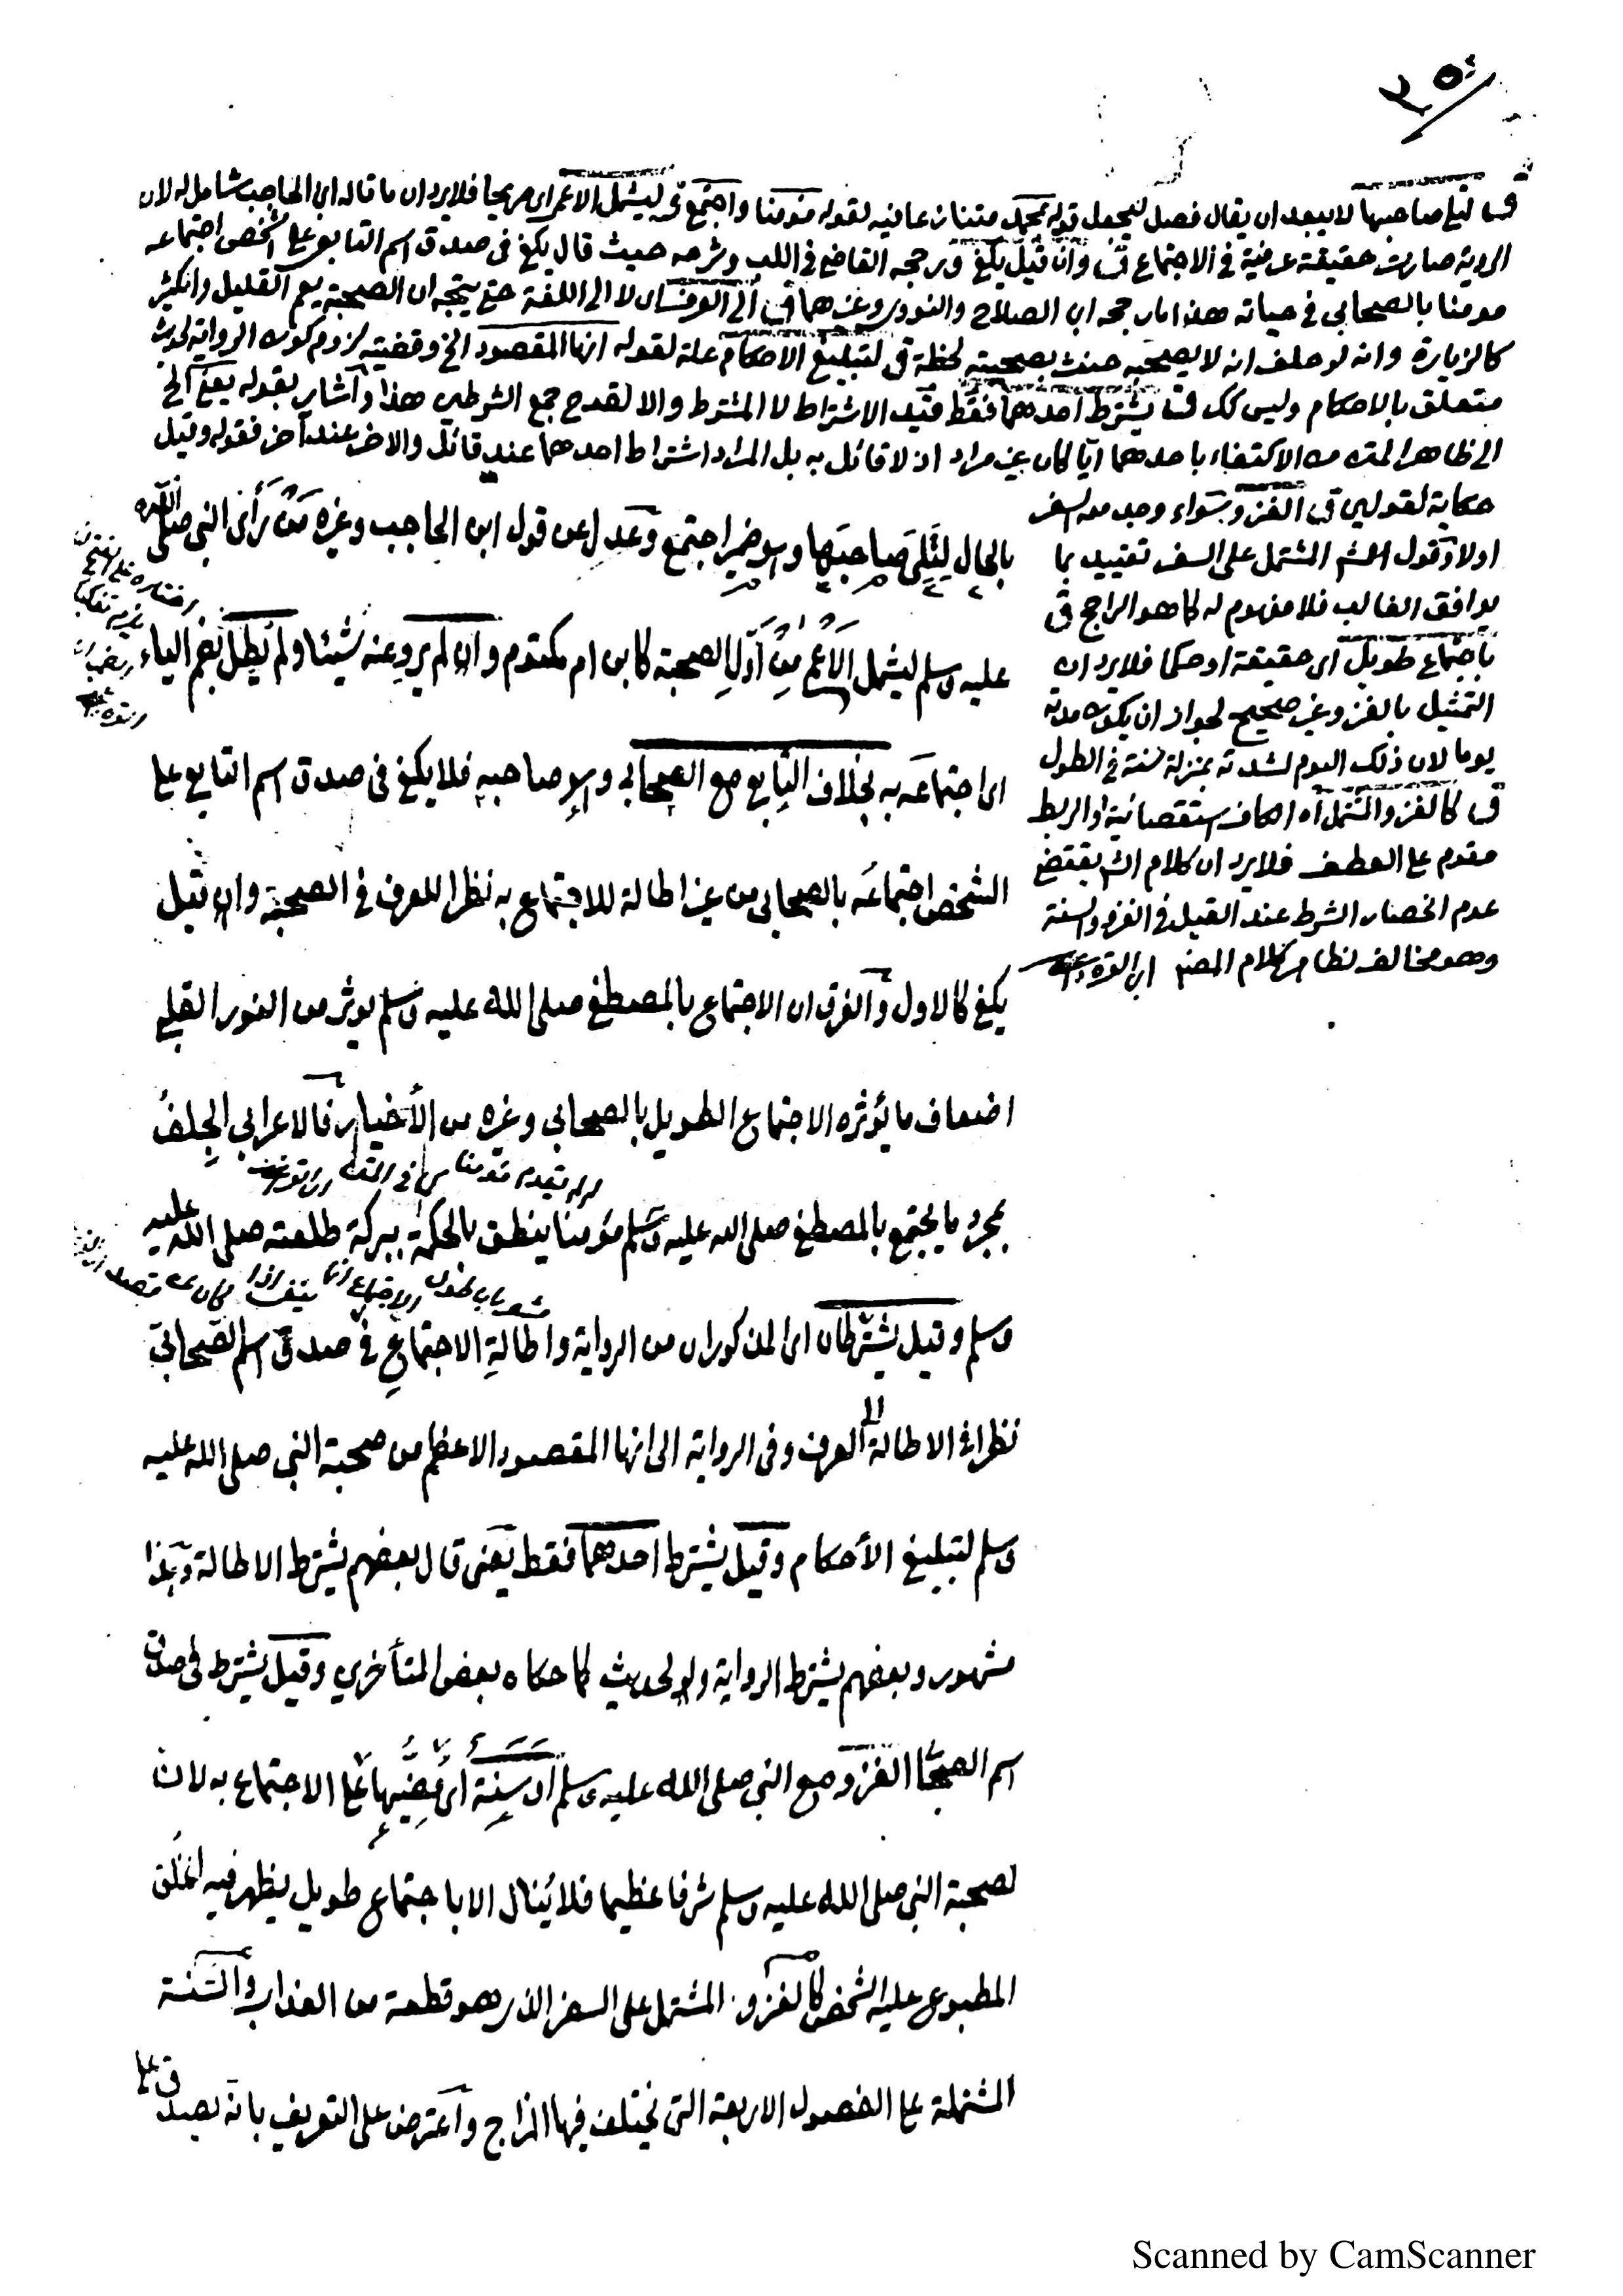 ٢٥٠
ق ليلي صاحبها لا يبعد ان يقال فصل ليجعل قوله بمحمد متنازعا فيه لقوله مؤمنا واجتمع ق ليشمل الاعمى اى صريحا فلا يرد ان ما قاله ابن الحاجب شامل له لان
الروية صارت حقيقة عرفية في الاجتماع ق وان قيل يكفي ورجحه القاضي في اللب وشرحه حيث قال يكفي في صدق اسم التابعي على الشخص اجتماعه
مومنا بالصحابى في حياته هذا ما رجحه ابن الصلاح والنووي وغيرهما ق الى العرف لا الى اللغة حتى يتجه ان الصحبة يعم القليل والكثير
كالزيارة وانه لو حلف انه لا يصحبه حنث بصحبته لحظة ق لتبليغ الاحكام علة لقوله انها المقصود الخ وقضيته لزوم كون الرواية لحديث
متعلق بالاحكام وليس كك ق يشترط احدهما فقط قيد الاشتراط لا المشترط والا لقدح جمع الشرطين هذا واشار بقوله يعنى الخ
الى ظاهر المتن من الاكتفاء باحدهما ايا كان غير مراد اذ لا قائل به بل المراد اشتراط احدهما عند قائل والاخر عند آخر فقوله وقيل
حكاية لقولين ق الغزو سواء وجد معه السفر
اولا وقول الش المشتمل على السفر تقييد بما
يوافق الغالب فلا مفهوم له كما هو الراجح ق
باجتماع طويل اى حقيقة او حكما فلا يرد ان
التمثيل بالغزو غير صحيح لجواز ان يكون مدته
يوما لان ذلك اليوم لشدته بمنزلة سنة في الطول
ق كالغزو المشتمل اه الكاف استقصائية والربط
مقدم على العطف فلا يرد ان كلام الش يقتضى
عدم انحصار الشرط عند القيل في الغزو والسنة
وهو مخالف لظاهر كلام المصنف ابن القره داغى
بالحال ليلي صاحبها وهو ضمير اجتمع وعدل عن قول ابن الحاجب وغيره من رأى النبي صلى الله
عليه وسلم ليشمل الاعمى من اول الصحبة كابن ام مكتوم وان لم يرو عنه شيئا ولم يطل بضم الياء
اى اجتماعه به بخلاف التابعي مع الصحابى وهو صاحبه فلا يكفي في صدق اسم التابعي على
الشخص اجتماعه بالصحابى من غير اطالة للاجتماع به نظرا للعرف في الصحبة وان قيل
يكفي كالاول والفرق ان الاجتماع بالمصطفى صلى الله عليه وسلم يوثر من النور القلبي
اضعاف ما يؤثره الاجتماع الطويل بالصحابى وغيره من الأخيار فالاعرابي الجلف
بمجرد ما يجتمع بالمصطفى صلى الله عليه وسلم مؤمنا ينطق بالحكمة ببركة طلعته صلى الله عليه
وسلم وقيل يشترطان اى المذكوران من الرواية واطالة الاجتماع في صدق اسم الصحابى
نظرا في الاطالة الى العرف وفى الرواية الى انها المقصود الاعظم من صحبة النبي صلى الله عليه
وسلم لتبليغ الأحكام وقيل يشترط احدهما فقط يعنى قال بعضهم يشترط الاطالة وهذا
مشهور وبعضهم يشترط الرواية ولو لحديث كما حكاه بعض المتأخرين وقيل يشترط في صدق
اسم الصحابى الغزو مع النبي صلى الله عليه وسلم او سنة اى مضيها على الاجتماع به لان
لصحبة النبي صلى الله عليه وسلم شرفا عظيما فلا ينال الا باجتماع طويل يظهر فيه الخلق
المطبوع عليه الشخص كالغزو المشتمل على السفر الذى هو قطعة من العذاب والسنة
المشتملة على الفصول الاربعة التي يختلف فيها المزاج واعترض على التعريف بانه يصدق على
Scanned by CamScanner